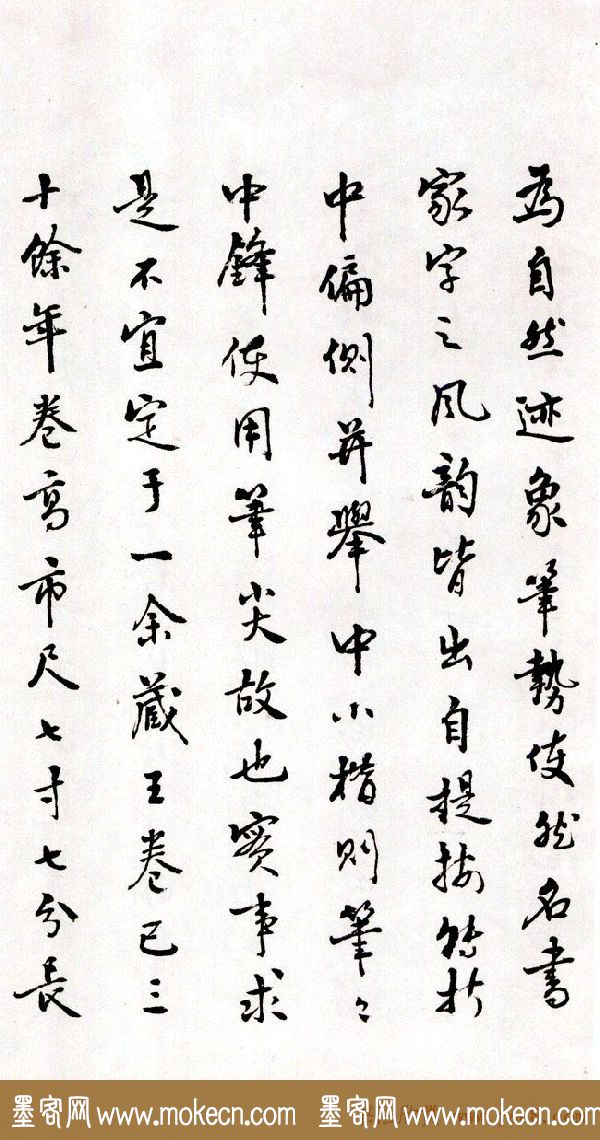 為自然迹象筆勢使然名書
家字之風韻皆出自提按轉折
中偏側并舉中小楷則筆々
中鋒使用筆尖故也實事求
是不宜定于一余藏王卷已三
十餘年卷高市尺七寸七分長
墨客网 www.mokecn.com 墨客网 www.mokecn.com